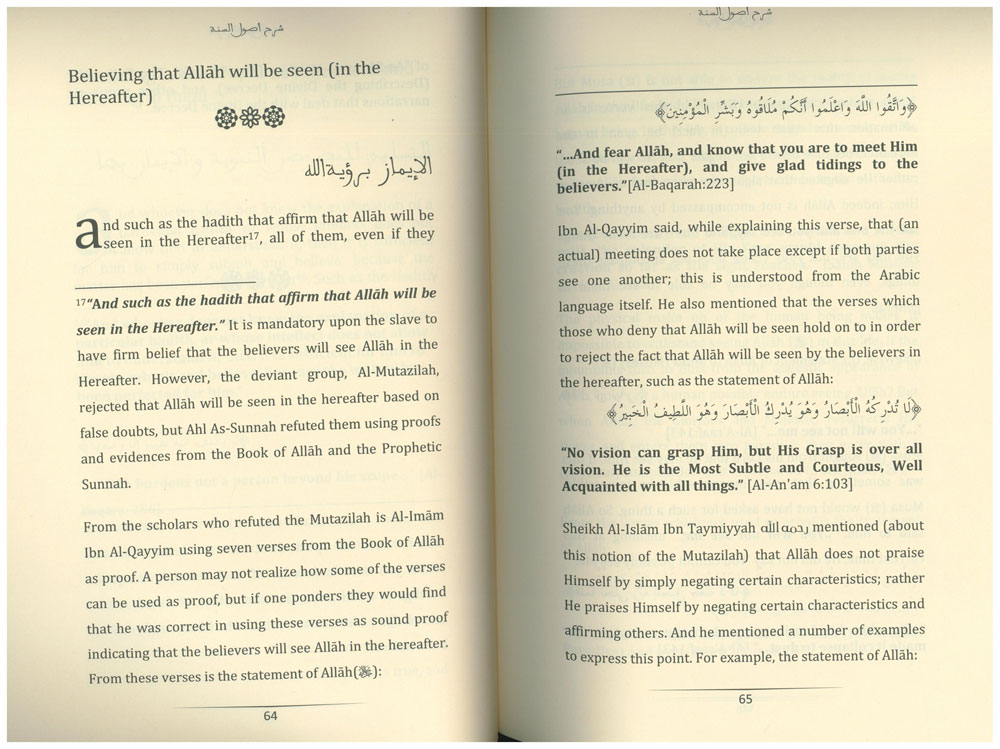 شرح اصول السنة
Believing that Allāh will be seen (in the
Hereafter)
الإيمان برؤية الله
and such as the hadith that affirm that Allāh will be
seen in the Hereafter¹⁷, all of them, even if they
¹⁷“And such as the hadith that affirm that Allāh will be
seen in the Hereafter.” It is mandatory upon the slave to
have firm belief that the believers will see Allāh in the
Hereafter. However, the deviant group, Al-Mutazilah,
rejected that Allāh will be seen in the hereafter based on
false doubts, but Ahl As-Sunnah refuted them using proofs
and evidences from the Book of Allāh and the Prophetic
Sunnah.
From the scholars who refuted the Mutazilah is Al-Imām
Ibn Al-Qayyim using seven verses from the Book of Allāh
as proof. A person may not realize how some of the verses
can be used as proof, but if one ponders they would find
that he was correct in using these verses as sound proof
indicating that the believers will see Allāh in the hereafter.
From these verses is the statement of Allāh(ﷻ):
64
شرح اصول السنة
﴿وَاتَّقُوا اللَّهَ وَاعْلَمُوا أَنَّكُمْ مُلَاقُوهُ وَبَشِّرِ الْمُؤْمِنِينَ﴾
“...And fear Allāh, and know that you are to meet Him
(in the Hereafter), and give glad tidings to the
believers.”[Al-Baqarah:223]
Ibn Al-Qayyim said, while explaining this verse, that (an
actual) meeting does not take place except if both parties
see one another; this is understood from the Arabic
language itself. He also mentioned that the verses which
those who deny that Allāh will be seen hold on to in order
to reject the fact that Allāh will be seen by the believers in
the hereafter, such as the statement of Allāh:
﴿لَا تُدْرِكُهُ الْأَبْصَارُ وَهُوَ يُدْرِكُ الْأَبْصَارَ وَهُوَ اللَّطِيفُ الْخَبِيرُ﴾
“No vision can grasp Him, but His Grasp is over all
vision. He is the Most Subtle and Courteous, Well
Acquainted with all things.” [Al-An'am 6:103]
Sheikh Al-Islām Ibn Taymiyyah رحمه الله mentioned (about
this notion of the Mutazilah) that Allāh does not praise
Himself by simply negating certain characteristics; rather
He praises Himself by negating certain characteristics and
affirming others. And he mentioned a number of examples
to express this point. For example, the statement of Allāh:
65